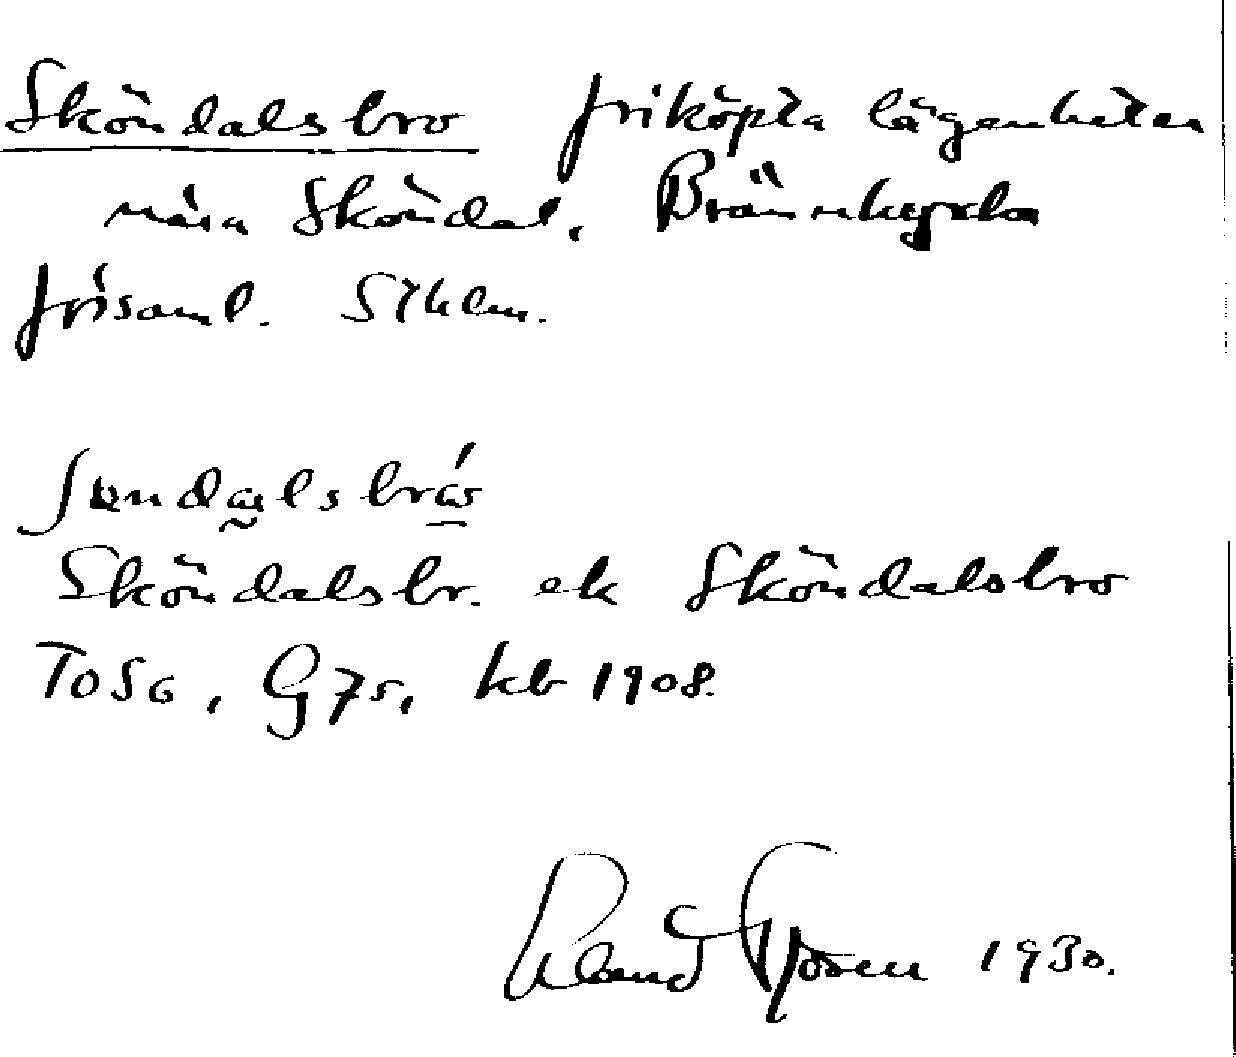 Sköndalsbro friköpta lägenheten
nära Sköndal, Brännkyrka
församl. Sthlm.
Sköndalsbr. ek Sköndalsbro
ToSG, G75, kb 1908.
1930.